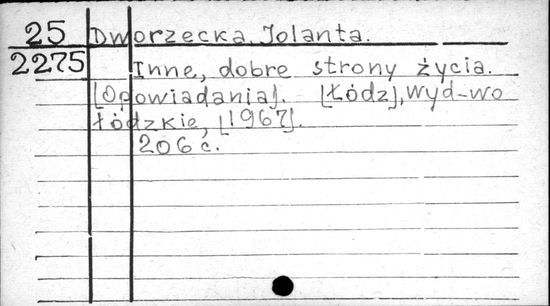 25 Dworzecka, Jolanta.
2275 Inne, dobre strony życia.
[Opowiadania]. [Łódz], Wyd-wo
Łódzkie, [1967].
206 с.